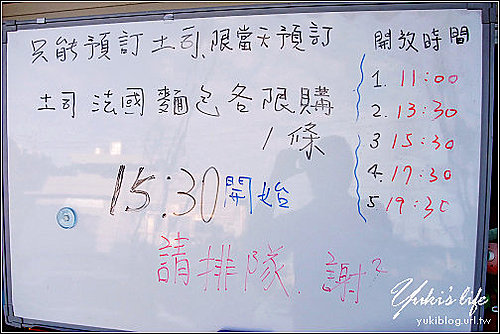 只能預訂土司、限當天預訂
土司 法國麵包各限購
1條
15:30開始
請排隊. 謝²
開放時間
1. 11:00
2. 13:30
3 15:30
4. 17:30
5 19:30
Yuki's life
yukiblog.url.tw